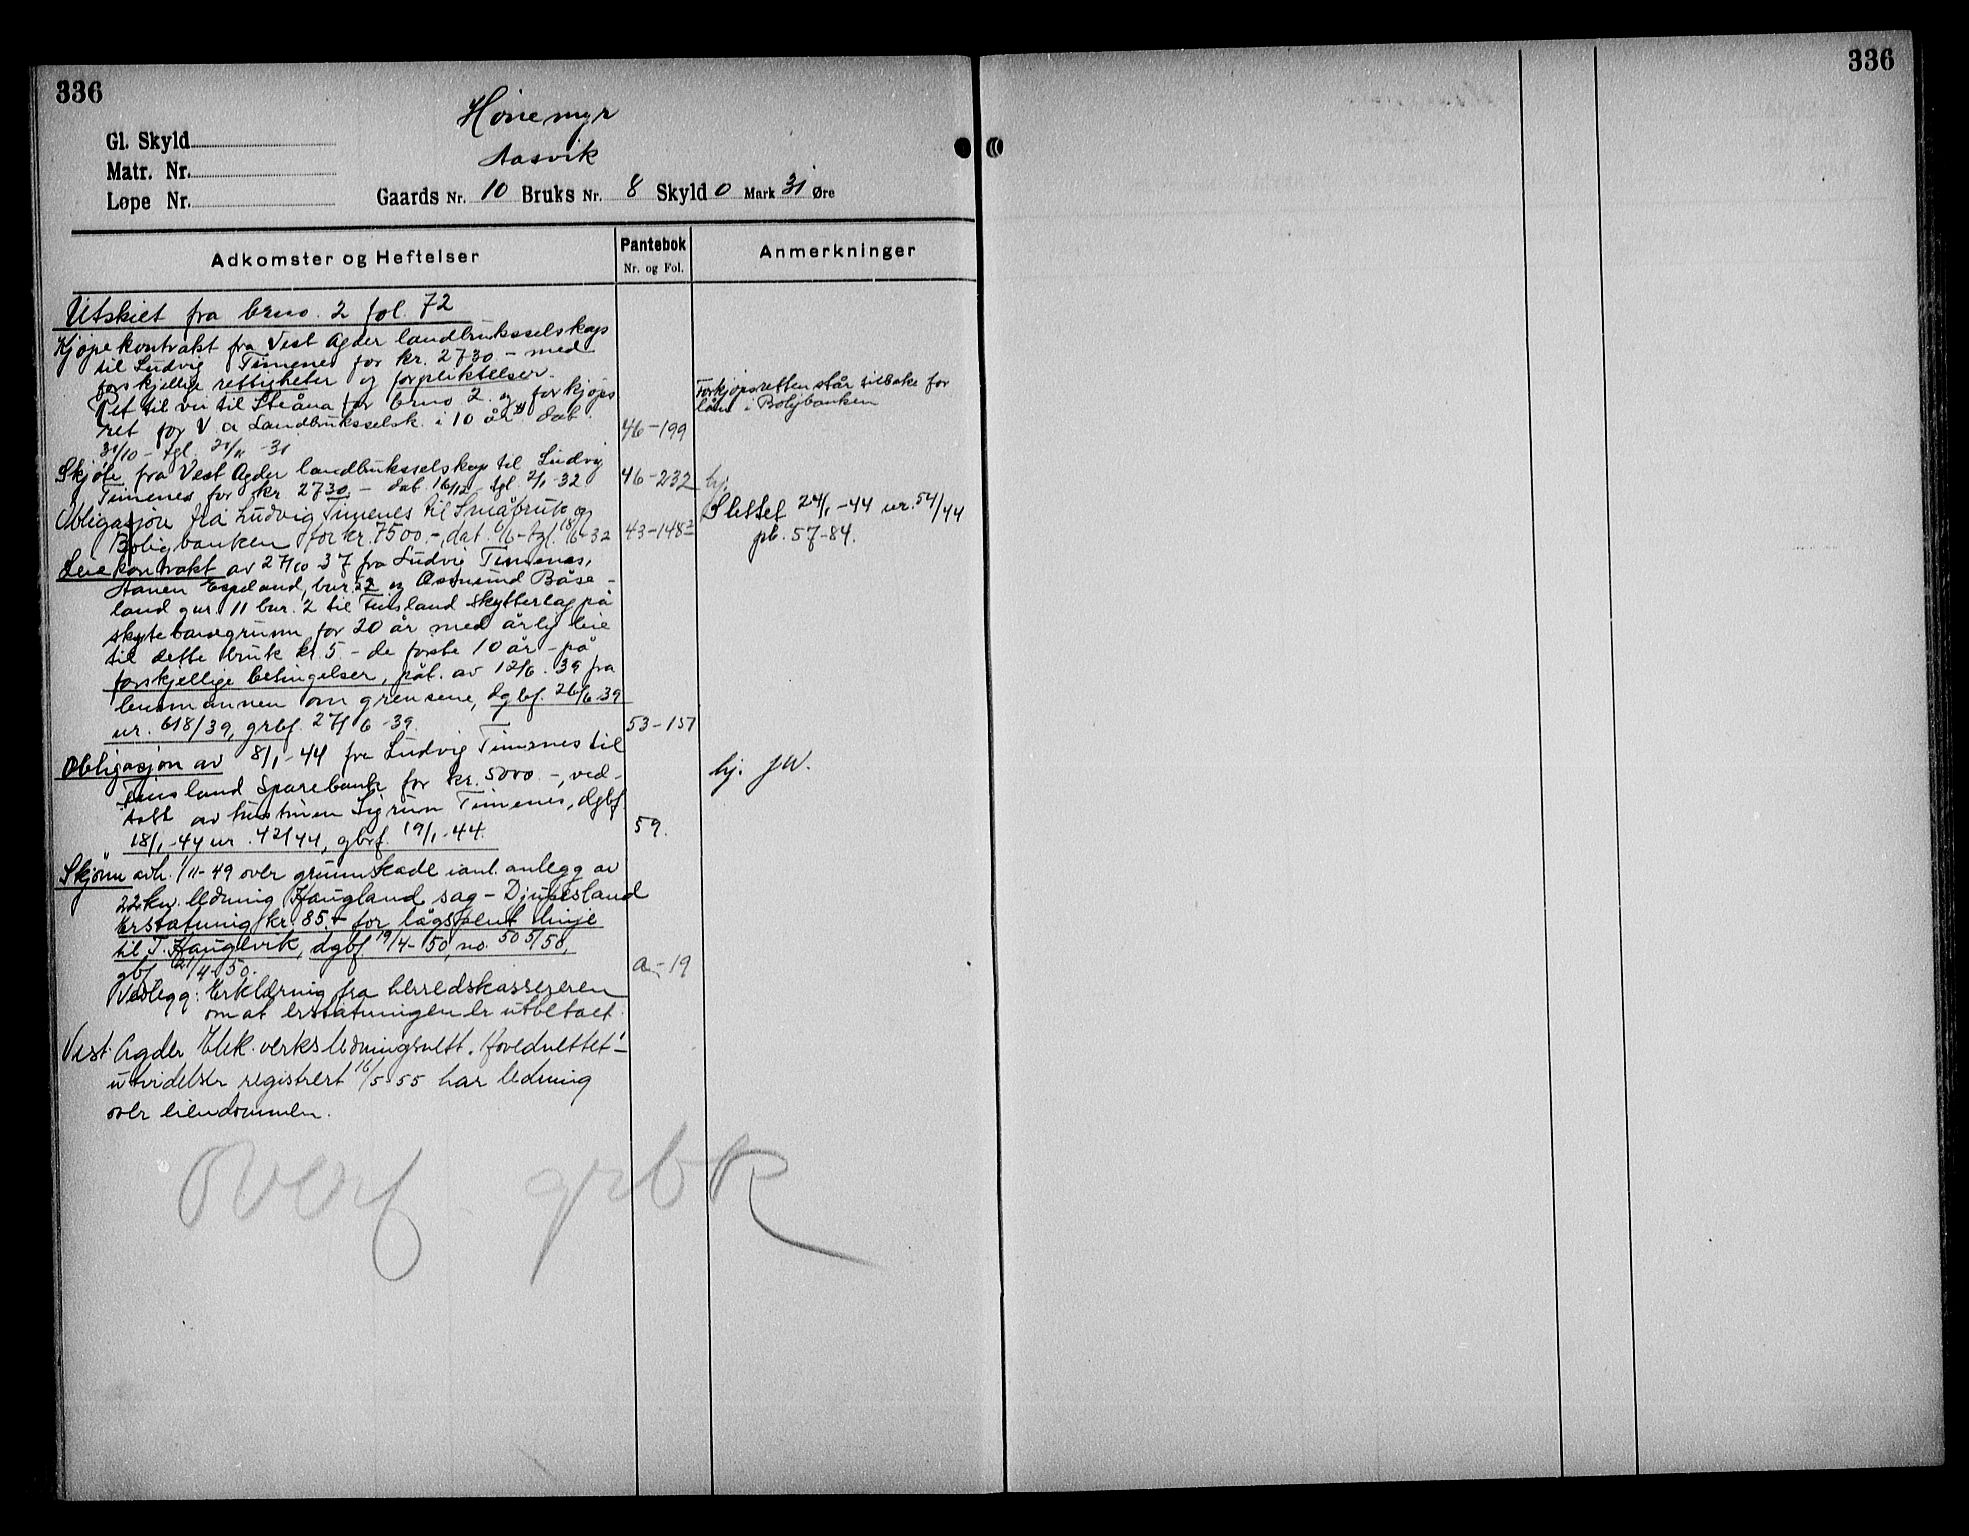 336
336
Hønemyr
Aasvik
Gl. Skyld
Matr. Nr.
Løpe Nr.
Gaards Nr. 10 Bruks Nr. 8 Skyld 0 Mark 31 Øre
Adkomster og Heftelser
Pantebok
Nr. og Fol.
Anmerkninger
Utskilt fra brno. 2 fol. 72
Kjøpekontrakt fra Vest Agder landbruksselskap
til Ludvig Timenes for kr. 2730.- med
forskjellige rettigheter og forpliktelser.
Ret til vei til Steåna for brno 2 og forkjøps
ret for V A Landbruksselsk. i 10 år dat.
31/10 - tgl. 21/11 -31
46-199
Forkjøpsretten står tilbake for
lån i Boligbanken
Skjøte fra Vest Agder landbruksselskap til Ludvig
Timenes for kr 2730.- dat 16/12 - tgl. 2/1-32
46-232
hj.
Obligasjon fra Ludvig Timenes til Småbruk og
Boligbanken for kr. 7500.-, dat. 6/6-tgl. 18/6-32
43-148
Slettet 24/1-44 nr. 54/44
pb. 57-84.
Leiekontrakt av 27/10 37 fra Ludvig Timenes,
Aanen Espeland, bnr. 22 og Osmund Båse-
land gnr. 11 bnr. 2 til Finsland skytterlag på
skytebanegrunn for 20 år med årlig leie
til dette bruk kr. 5.- de første 10 år - på
forskjellige betingelser, påt. av 12/6. 39 fra
lensmannen om grensene, dgbf. 26/6 39
nr. 618/39, grbf. 27/6-39
53-157
Obligasjon av 8/1-44 fra Ludvig Timenes til
Finsland Sparebank for kr. 5000.-, ved-
tatt av hustruen Sigrun Timenes, dgbf
18/1-44 nr. 42/44, gbrf. 19/1-44.
59.
hj. JW.
Skjønn avh. 1/11-49 over grunnskade i anl. anlegg av
22 kw. ledning Haugland sag - Djupesland
Erstatning kr. 85.- for lågspent linje
til T. Hauglvik, dgbf. 19/4-50, no. 505/50,
gbf 21/4-50.
a-19
Vedlegg: Erklæring fra herredskassereren
om at erstatningen er utbetalt.
Vest-Agder Elek. verks ledningsnett. Hovednettet -
utvidelser registrert 16/5-55 har ledning
over eiendommen.
overf grbk